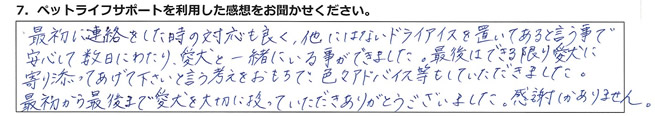 7. ペットライフサポートを利用した感想をお聞かせください。
最初に連絡をした時の対応も良く、他にはないドライアイスを置いてあると言う事で
安心して数日にわたり、愛犬と一緒にいる事ができました。最後はできる限り愛犬に
寄り添ってあげて下さいと言う考えをおもちで、色々アドバイス等もしていただきました。
最初から最後まで愛犬を大切に扱っていただきありがとうございました。感謝しかありません。